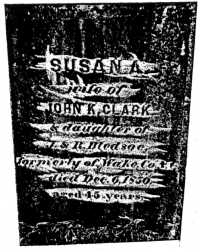 SUSAN A.
wife of
JOHN K. CLARK
& daughter of
& R. Bledsoe
formerly of Wake Co.
died Dec. 6 1850
aged 45 years.